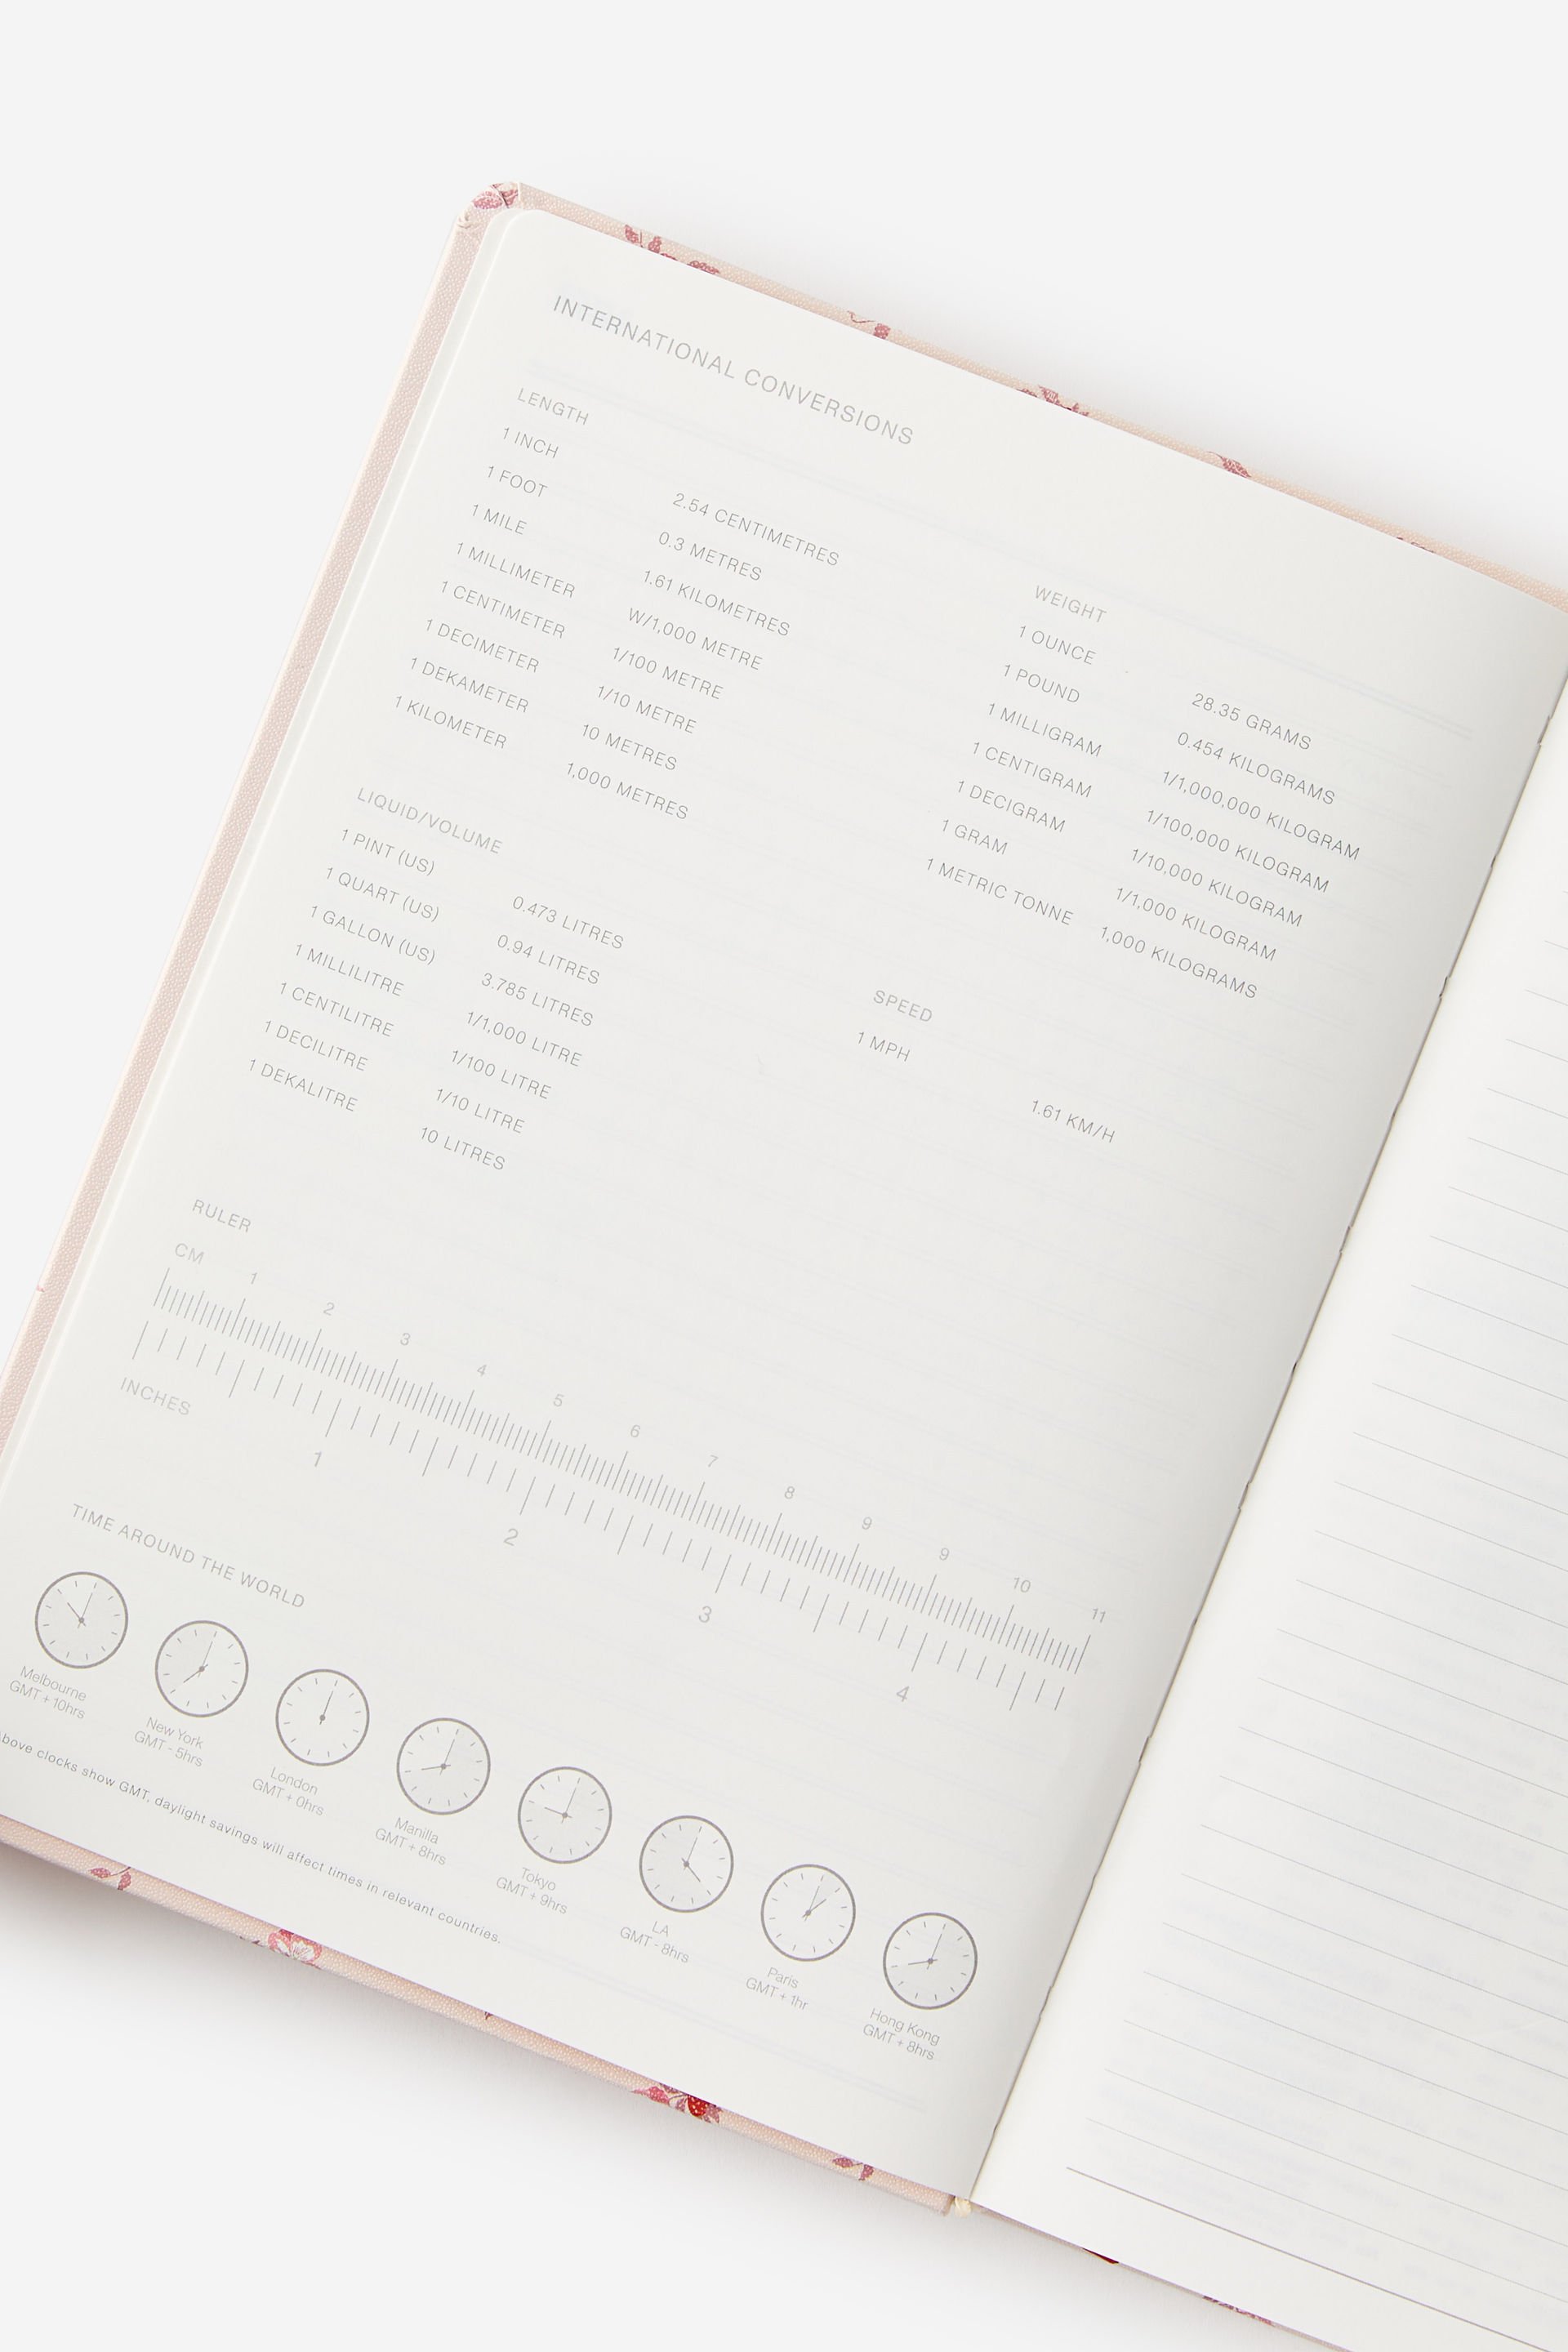 INTERNATIONAL CONVERSIONS
LENGTH
1 INCH 2.54 CENTIMETRES
1 FOOT 0.3 METRES
1 MILE 1.61 KILOMETRES
1 MILLIMETER W/1,000 METRE
1 CENTIMETER 1/100 METRE
1 DECIMETER 1/10 METRE
1 DEKAMETER 10 METRES
1 KILOMETER 1,000 METRES
LIQUID/VOLUME
1 PINT (US) 0.473 LITRES
1 QUART (US) 0.94 LITRES
1 GALLON (US) 3.785 LITRES
1 MILLILITRE 1/1,000 LITRE
1 CENTILITRE 1/100 LITRE
1 DECILITRE 1/10 LITRE
1 DEKALITRE 10 LITRES
WEIGHT
1 OUNCE 28.35 GRAMS
1 POUND 0.454 KILOGRAMS
1 MILLIGRAM 1/1,000,000 KILOGRAM
1 CENTIGRAM 1/100,000 KILOGRAM
1 DECIGRAM 1/10,000 KILOGRAM
1 GRAM 1/1,000 KILOGRAM
1 METRIC TONNE 1,000 KILOGRAMS
SPEED
1 MPH 1.61 KM/H
RULER
CM
1 2 3 4 5 6 7 8 9 9 10 11
INCHES
1 2 3 4
TIME AROUND THE WORLD
Melbourne
GMT + 10hrs
New York
GMT - 5hrs
London
GMT + 0hrs
Manilla
GMT + 8hrs
Tokyo
GMT + 9hrs
LA
GMT - 8hrs
Paris
GMT + 1hr
Hong Kong
GMT + 8hrs
bove clocks show GMT, daylight savings will affect times in relevant countries.